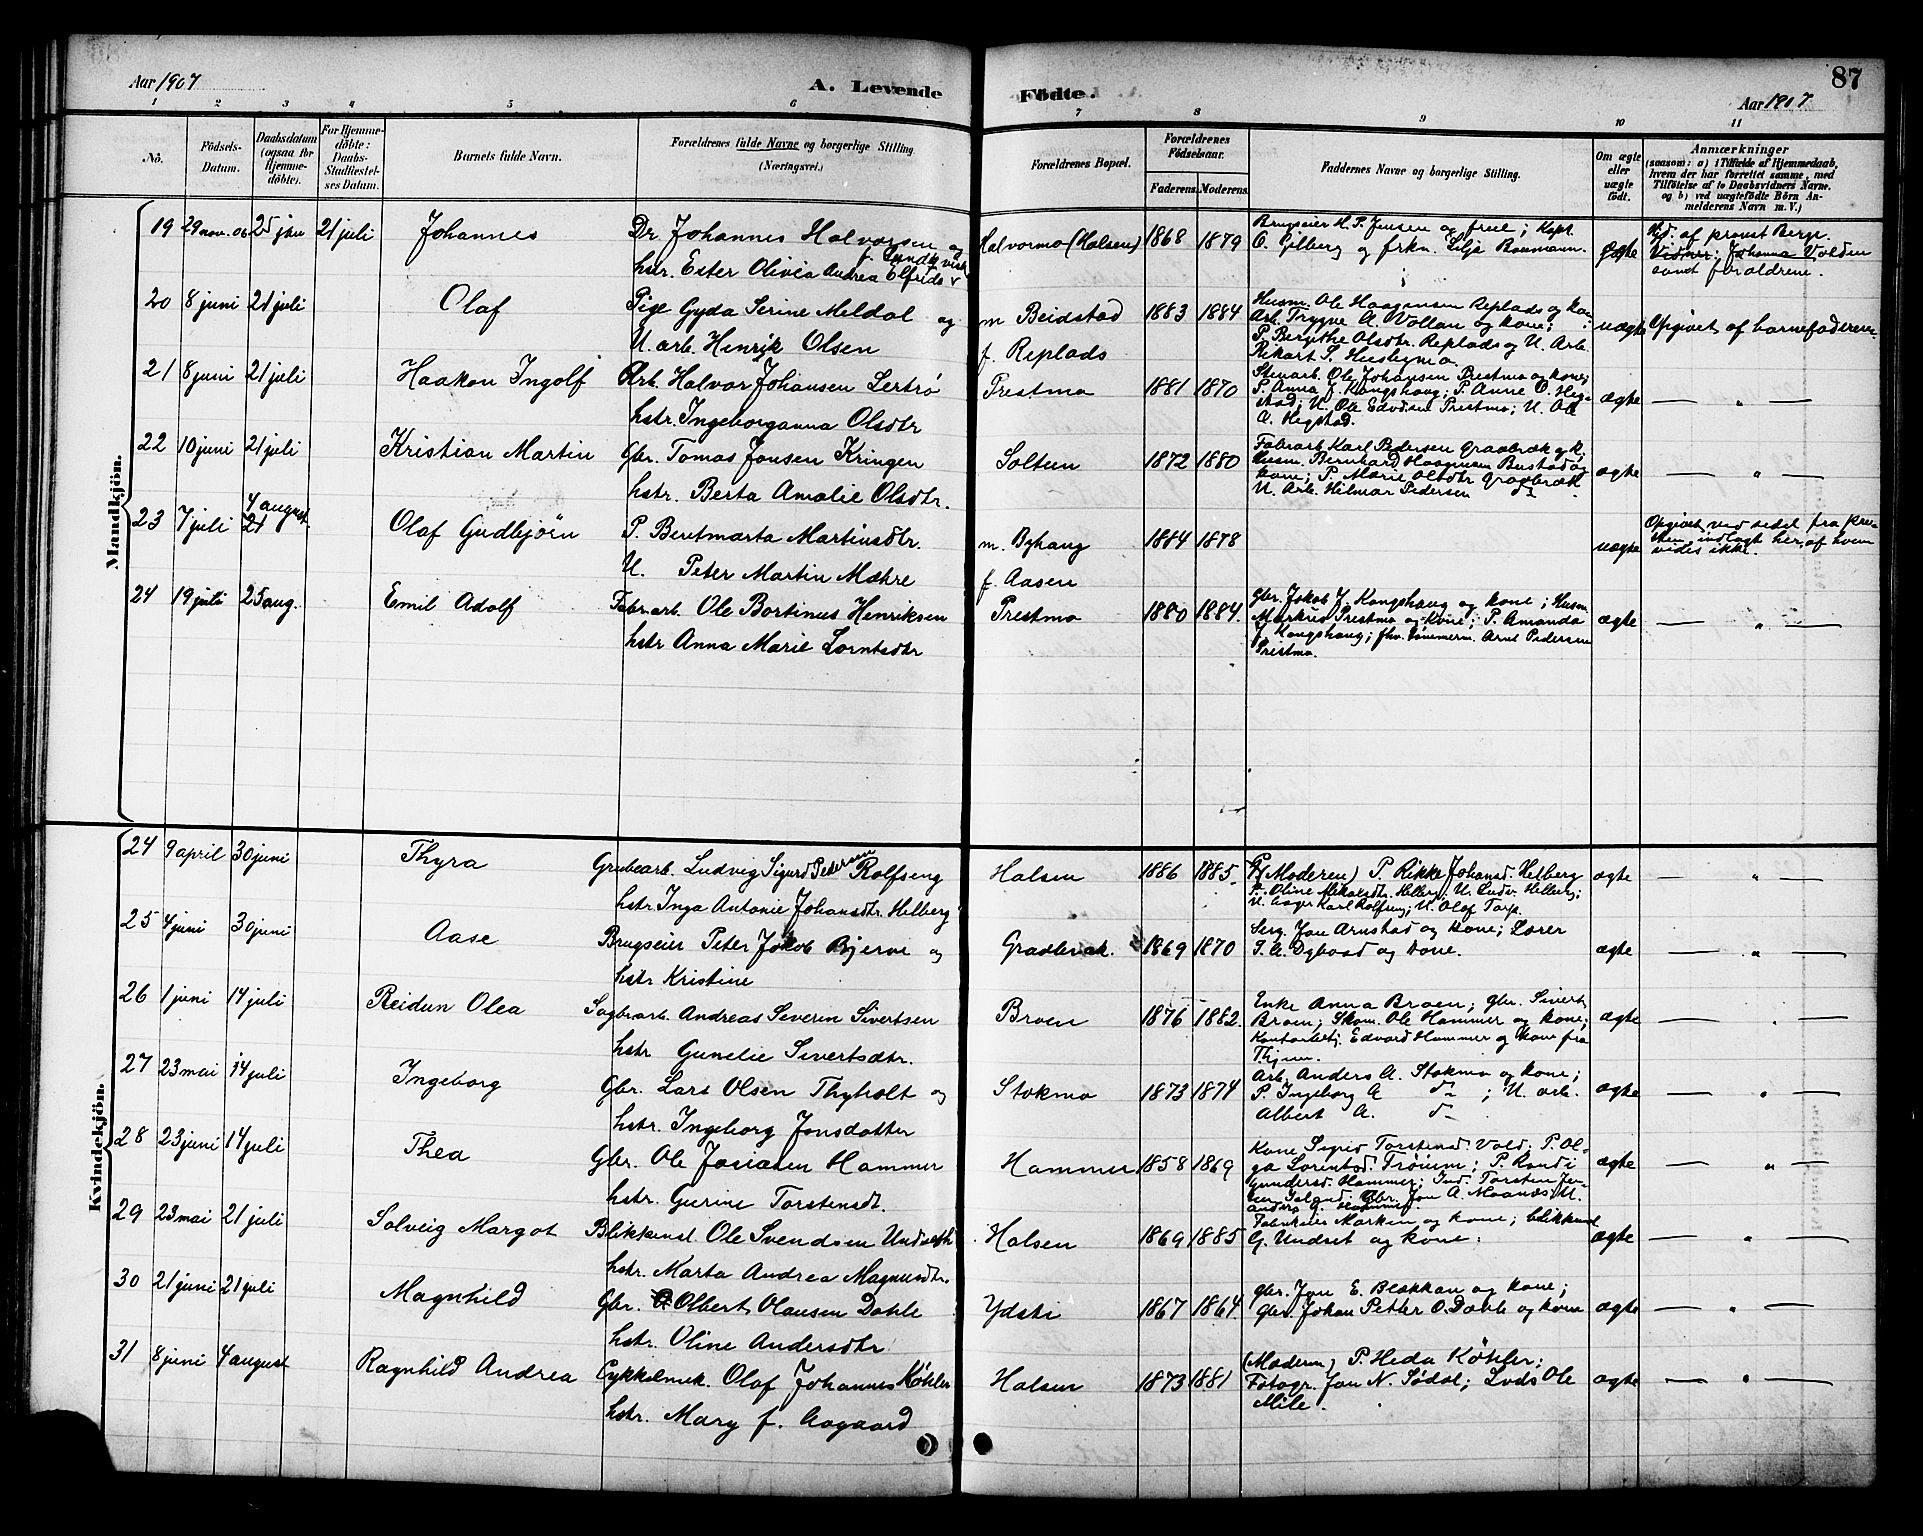 Aar 1907
A. Levende
Födte.
87
Aar 1907
1 2 3 4 5 6 7 8 9 10 11
No.
Födsels-Datum.
Daabsdatum (ogsaa for Hjemme-döbte).
For Hjemme-döbte: Daabs-Stadfæstel-ses Datum.
Barnets fulde Navn.
Forældrenes fulde Navne og borgerlige Stilling. (Næringsvei.)
Forældrenes Bopæl.
Forældrenes Födselsaar.
Faderens. Moderens.
Faddernes Navne og borgerlige Stilling.
Om ægte eller uægte födt.
Anmærkninger
(saasom: a) i Tilfælde af Hjemmedaab, hvem der har forrettet samme, med Tilföielse af to Daabsvidners Navne. og b) ved uægtefödte Börn An-melderens Navn m. V.)
Mandkjön.
19 29 nov. 06 25 jan 21 juli Johannes Dr. Johannes Halvorsen og Halvormo (Halsen) 1868 1879 Brugseier H. P. Jensen og frue; Kapt. ægte af provst Berge.
hstr. Ester Olivia Andrea Elfride f. Lundkvist O. Gilberg og frkn. Silja Baumann. Vidner: Johanna Volden
samt forældrene.
20 8 juni 21 juli Olaf Pige Gyda Serine Meldal og m Beidstad 1883 1884 Husm. Ole Haagensen Replads og kone uægte Opgivet af barnefaderen
U. arb. Henrik Olsen f. Replads Arb. Trygve A. Vollan og kone;
P. Bergithe Olsdtr. Replads og U. Arb.
Rikart S.
21 8 juni 21 juli Haakon Ingolf Arb. Halvor Johansen Lertrö Prestmo 1881 1870 Stenarb. Ole Johansen Prestmo og kone; ægte — " —
hstr. Ingeborganna Olsdtr P. Anna J. Kongshaug; P. Anne O. Heg-
stad; U. Ole Edvdsen Prestmo; U. Ole
A. Hegstad.
22 10 juni 21 juli Kristian Martin Gbr. Tomas Jonsen Kringen Soltun 1872 1880 Fabrarb. Karl Pedersen Graabræk og k; ægte — " —
hstr. Berta Amalie Olsdtr. Husm. Bernhard Haagensen Bustad og
kone; P. Marie Olsdtr Graabræk
U. Arb. Hilmar Pedersen do
23 7 juli 4 august 21 Olaf Gudbjörn P. Beretmarta Martinsdtr. m. Byhaug 1884 1878 uægte Opgivet ved sedel fra præ-
U. Peter Martin Mæhre f. Aasen sten indlagt her, af hvem
vides ikke.
24 19 juli 25 aug. Emil Adolf Fabrarb. Ole Bortinus Henriksen Prestmo 1880 1884. Gbr. Jakob J. Kongshaug og kone; Husm. ægte — " —
hstr Anna Marie Lorntsdtr Markus Prestmo og kone; P. Amanda
J. Kongshaug; fhv. tömmerm. Arnt Pedersen
Prestmo.
Kvindekjön.
24 9 april 30 juni Thyra Grubearb. Ludvig Sigurd Pedersen Rolfseng Halsen 1886 1885. (Moderen) P. Rikke Johansd. Helberg ægte — " —
hstr. Inga Antonie Johansdtr. Helberg P. Oline Mikalsdtr. Helberg; U. Ludv. Helberg;
U. Karl Rolfseng; U. Olaf Torp.
25 4 juni 30 juni Aase Brugseier Peter Jakob Bjerve og Graabræk. 1869 1870 Serg. Jon Arnstad og kone; Lærer ægte — " —
hstr Kristine og kone.
26 1 juni 14 juli Reidun Olea Sagbrarb. Andreas Severin Sivertsen Broen 1876 1882. Enke Anna Broen; gbr. Sivert ægte — " —
hstr. Gunelie Sivertsdtr. Broen; Skom. Ole Hammer og kone;
Kontorbetj. Edvard Hammer og kone fra
Thjem.
27 23 mai 14 juli Ingeborg Gbr. Lars Olsen Thyholt og Stokmo 1873 1874 Arb. Anders A. Stokmo og kone; ægte — " —
hstr. Ingeborg Jonsdatter P. Ingeborg A do; U. arb.
Albert A. do
28 23 juni 14 juli Thea Gbr. Ole Josiasen Hammer Hammer 1858 1869 Kone Sigrid Torstensd. Vold; P. Ol- ægte — " —
hstr. Gurine Torstensdt. ga Lorentsd. Tröiem; P. Randi
Gundersd. Hammer; Ind. Torsten Jen-
sen; Gbr. Jon A. Maanæs; U.
Anders G. Hammer.
29 23 mai 21 juli Solveig Margot Blikkensl. Ole Svendsen Undseth Halsen 1869 1885 Fabrikeier Marken og kone; blikkensl. ægte — " —
hstr. Marta Andrea Magnusdtr. G. Undset og kone.
30 21 juni 21 juli Magnhild Gbr. Olbert Olausen Dahle Ydsti 1867 1864. Gbr. Jon E. Blækkan og kone; ægte — " —
hstr. Oline Andersdtr Gbr. Johan Petter O. Dahle og kone
31 8 juni 4 august Ragnhild Andrea Cykkelmek. Olaf Johannes Köhler Halsen 1873 1881 (Moderen) P. Heda Köhler; ægte — " —
hstr. Mary f. Aagaard Fotogr. Jon N. Södal; Lods Ole
Mile.